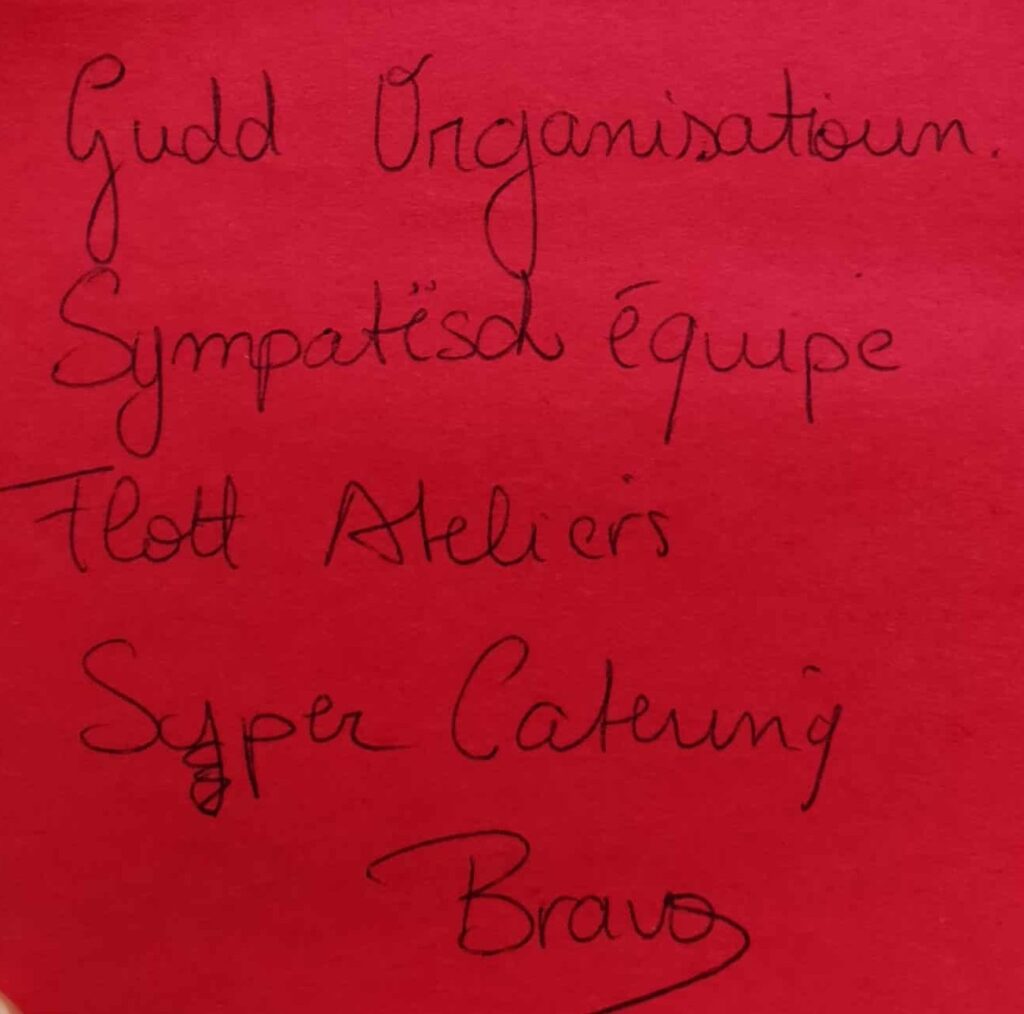 Gudd Organisatioun.
Sympatësch équipe
Flott Ateliers
Super Catering
Bravo